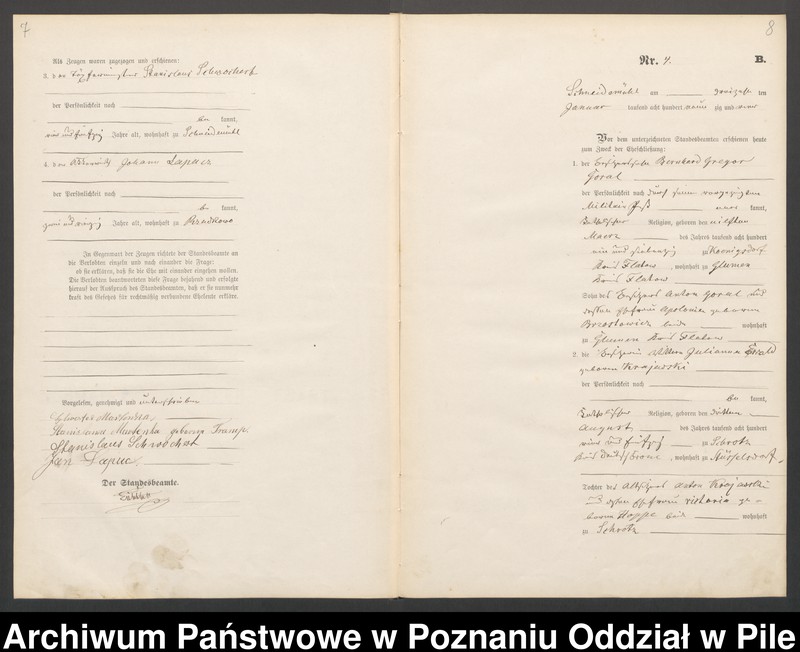 7
Als Zeugen waren zugezogen und erschienen:
3. der Töpfermeister Stanislaus Schrochert
der Persönlichkeit nach
be kannt,
vier und fünfzig Jahre alt, wohnhaft zu Schneidemühl
4. der Johann Lapucz
der Persönlichkeit nach
be kannt,
zwei und vierzig Jahre alt, wohnhaft zu
In Gegenwart der Zeugen richtete der Standesbeamte an
die Verlobten einzeln und nach einander die Frage:
ob sie erklären, daß sie die Ehe mit einander eingehen wollen.
Die Verlobten beantworteten diese Frage bejahend und erfolgte
hierauf der Ausspruch des Standesbeamten, daß er sie nunmehr
kraft des Gesetzes für rechtmäßig verbundene Eheleute erkläre.
Vorgelesen, genehmigt und unterschrieben
Stanislawa geborene
Stanislaus Schrochert
Jan Lapuc
Der Standesbeamte.
8
Nr. 4.
B.
Schneidemühl am ten
Januar tausend acht hundert neun zig und
Vor dem unterzeichneten Standesbeamten erschienen heute
zum Zweck der Eheschließung:
1. der Besitzersohn Bernhard Gregor
Goral
der Persönlichkeit nach durch seinen vorgezeigten
Militair Paß kannt,
katholischer Religion, geboren den eilften
Maerz des Jahres tausend acht hundert
ein und siebenzig zu Koenigsdorf
Kreis Flatow, wohnhaft zu Glumen
Kreis Flatow
Sohn des Besitzers Anton Goral und
dessen Ehefrau Apolonia geborenen
Brzostowicz beide wohnhaft
zu Glumen Kreis Flatow
2. die Besitzerin Wittwe Julianna Ewald
geborene Krajewski
der Persönlichkeit nach
be kannt,
katholischer Religion, geboren den dritten
August des Jahres tausend acht hundert
vier und fünfzig zu Schrotz
Kreis Deutsch Krone, wohnhaft zu Stüsselsdorf
Tochter des Altsitzers Anton Krajewski
und dessen Ehefrau Victoria ge-
borene Hoppe beide wohnhaft
zu Schrotz
Archiwum Państwowe w Poznaniu Oddział w Pile